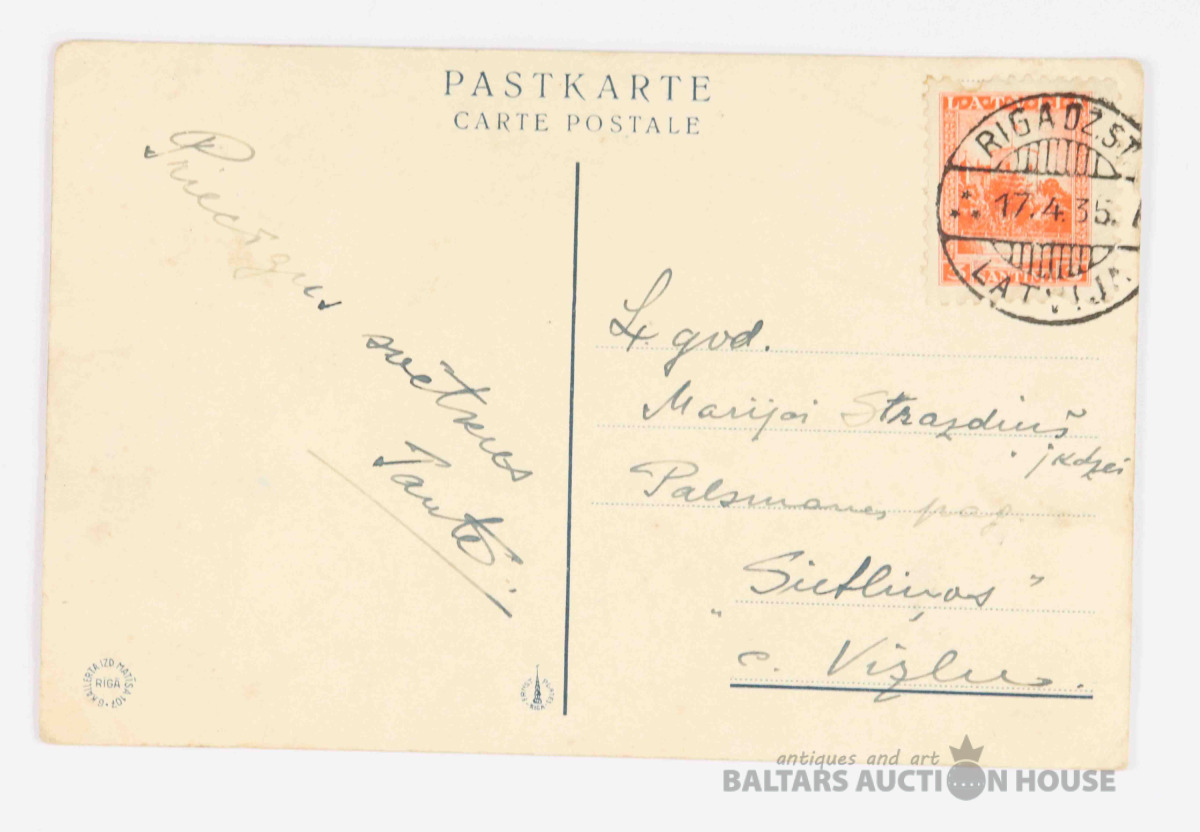 PASTKARTE
CARTE POSTALE
Priecīgus
svētkus
Tante.
LATVIJA
RIGA DZ.ST
17.4.35.
LATVIJA
Ļ. god.
Marijai Strazdiņš
jkdzei
Palsmanes pag.
„Sietliņos"
c. Vizlu.
RIGA
antiques and art
BALTARS AUCTION HOUSE